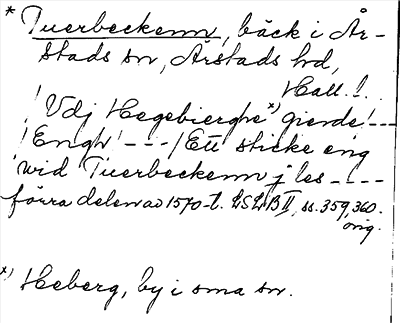 * Tuerbeckenn, bäck i År-
stads sn, Årstads hd,
Hall.!.
! Vdj Hegebierghe *) gierde! ---
! Engh! --- / Ett sticke eng
wid Tuerbeckenn j les ----
förra delen av 1570-t. LSLB II, ss. 359, 360.
orig.
*) Heberg, by i sma sn.